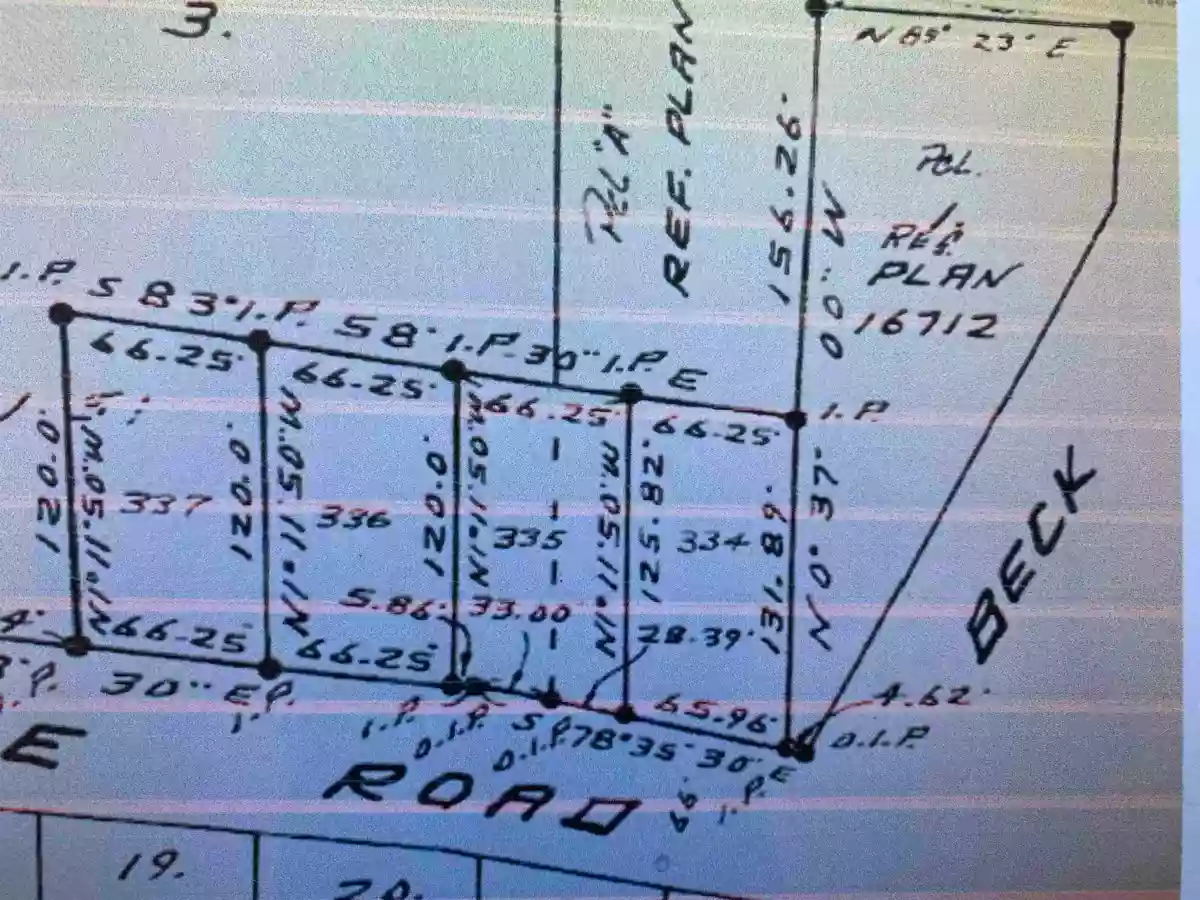 3.
N 89° 23' E
PCL. "A"
REF. PLAN
156.26'
PCL.
1.
REF.
PLAN
16712
N 0° 37' 00" W
I.P. S 83° I.P. 58' I.P. 30" I.P. E
I.P.
66.25'
66.25'
66.25'
66.25'
120.0'
120.0'
120.0'
125.82'
131.89'
337
336
335
334
5.86'
33.00'
28.39'
66.25'
66.25'
65.96'
4.62'
30" E
I.P.
I.P.
O.I.P.
O.I.P.
S 78° 35' 30" E
I.P.
O.I.P.
66'
BECK
E
ROAD
19.
20.